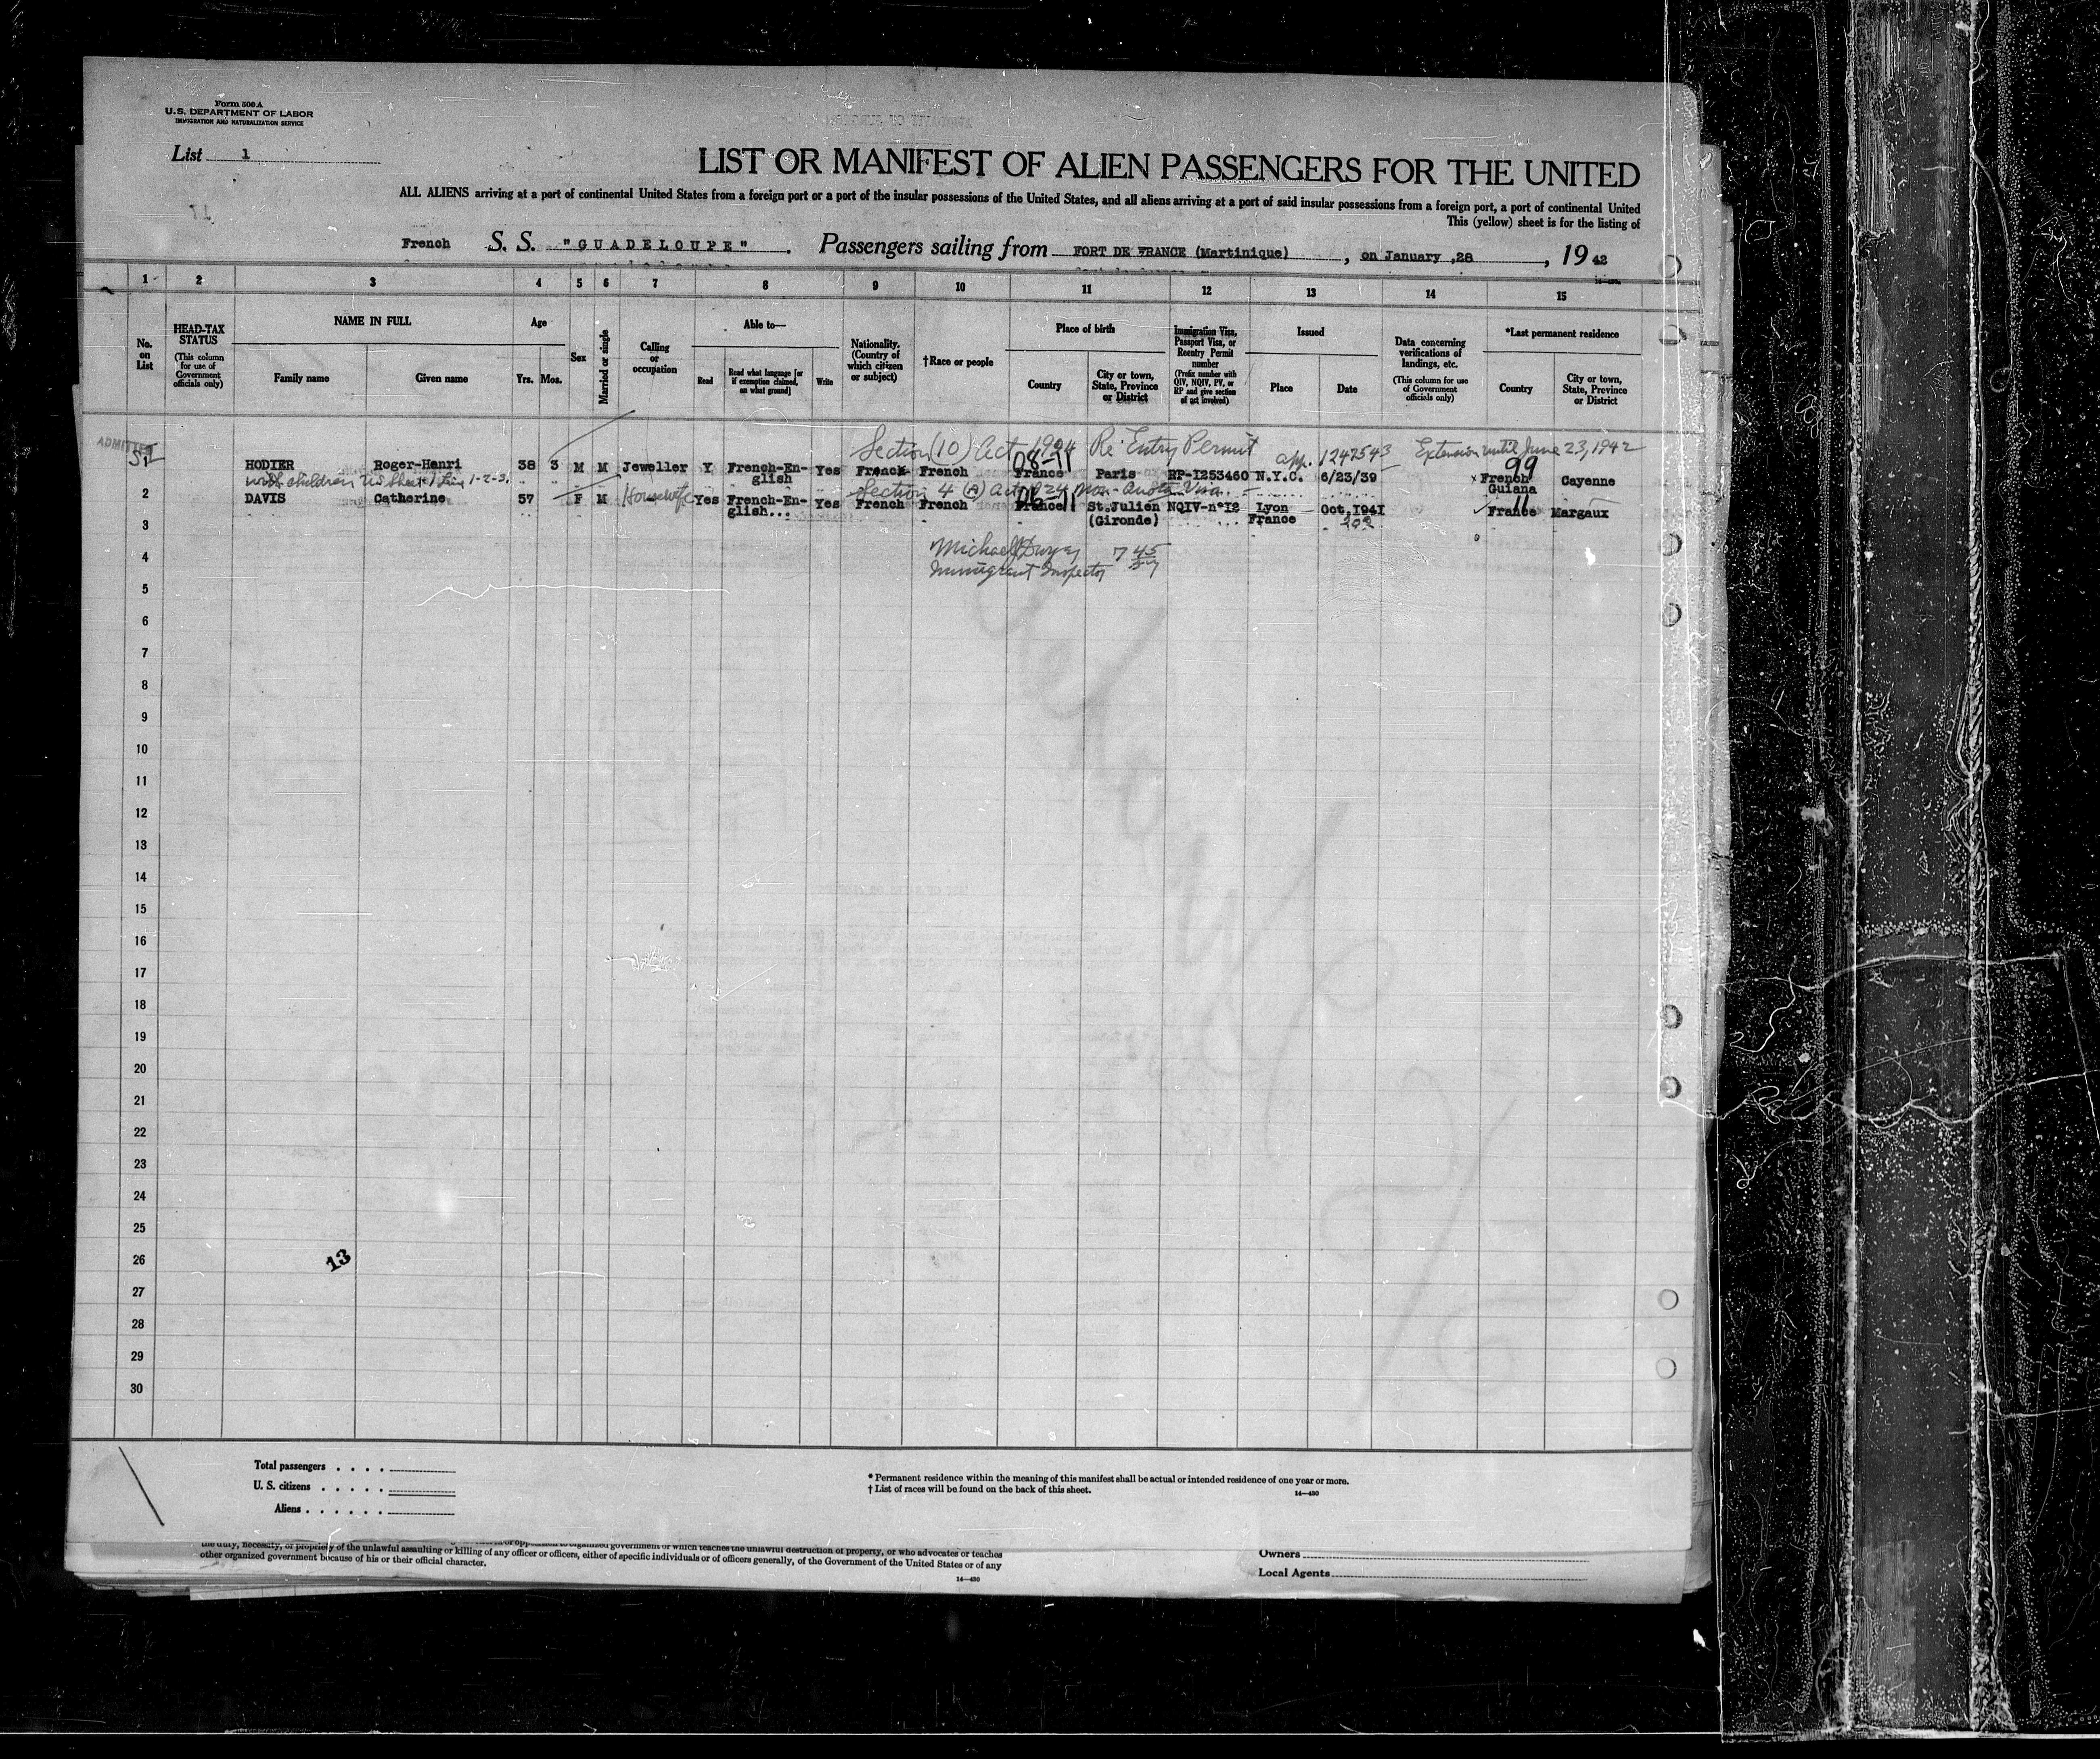 Form 500 A
U.S. DEPARTMENT OF LABOR
IMMIGRATION AND NATURALIZATION SERVICE
List 1
LIST OR MANIFEST OF ALIEN PASSENGERS FOR THE UNITED
ALL ALIENS arriving at a port of continental United States from a foreign port or a port of the insular possessions of the United States, and all aliens arriving at a port of said insular possessions from a foreign port, a port of continental United
This (yellow) sheet is for the listing of
French S. S. "GUADELOUPE" . Passengers sailing from FORT DE FRANCE (Martinique) , on January ,28 , 19 42
1 2 3 4 5 6 7 8 9 10 11 12 13 14 15
No. on List
HEAD-TAX STATUS
(This column for use of Government officials only)
NAME IN FULL
Family name Given name
Age
Yrs. Mos.
Sex
Married or single
Calling or occupation
Able to—
Read
Read what language [or if exemption claimed, on what ground]
Write
Nationality. (Country of which citizen or subject)
†Race or people
Place of birth
Country
City or town, State, Province or District
Immigration Visa, Passport Visa, or Reentry Permit number
(Prefix number with QIV, NQIV, PV, or RP and give section of act involved)
Issued
Place Date
Data concerning verifications of landings, etc.
(This column for use of Government officials only)
*Last permanent residence
Country
City or town, State, Province or District
ADMITTED
Section (10) Act 1924 Re Entry Permit app. 1247543 Extension until June 23, 1942
08-11 99
HODIER Roger-Henri 38 3 M M Jeweller Y French-English Yes French French France Paris RP-I253460 N.Y.C. 6/23/39 French Guiana Cayenne
with children US Sheet 1 Line 1-2-3.
Section 4 (A) Act 1924 Non-Quota Visa
2 DAVIS Catherine 57 F M Housewife Yes French-English... Yes French French France St.Julien (Gironde) NQIV-n°I2 Lyon France Oct.I94I France Margaux
11
3
4
Michael
Immigrant Inspector
7 45
5
6
7
8
9
10
11
12
13
14
15
16
17
18
19
20
21
22
23
24
25
26
13
27
28
29
30
Total passengers . . . .
U. S. citizens . . . . .
Aliens . . . . . .
* Permanent residence within the meaning of this manifest shall be actual or intended residence of one year or more.
† List of races will be found on the back of this sheet.
14—430
the duty, necessity, or propriety of the unlawful assaulting or killing of any officer or officers, either of specific individuals or of officers generally, of the Government of the United States or of any
other organized government because of his or their official character.
14—430
Owners
Local Agents